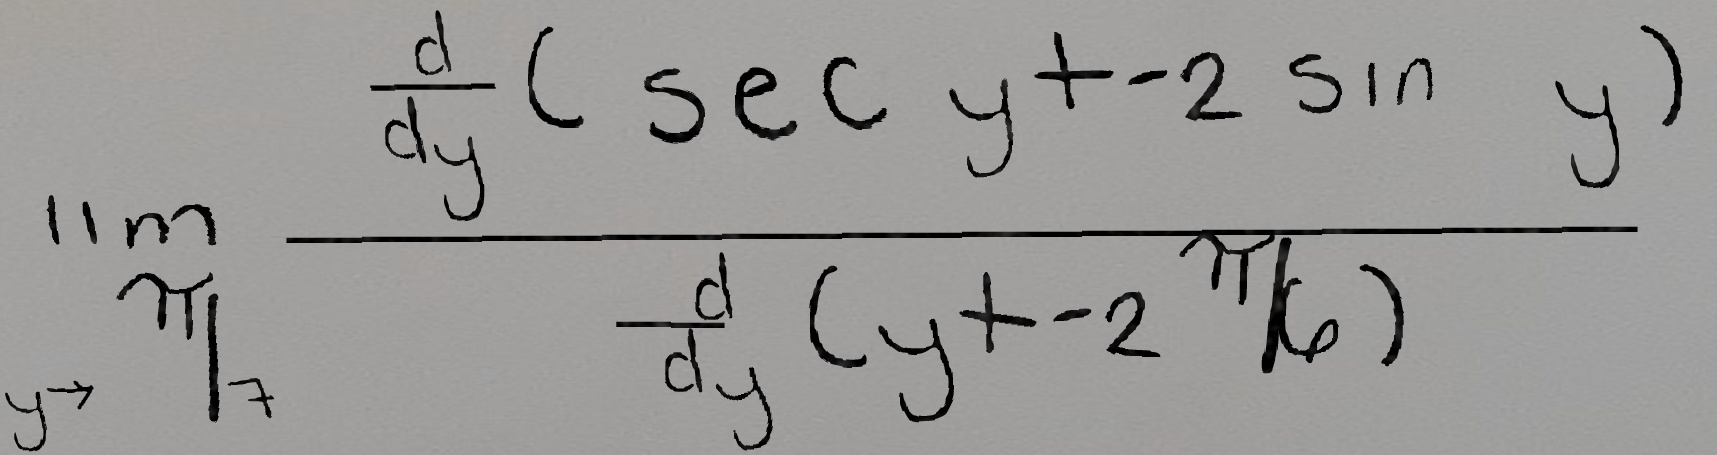 \lim_{y \to \pi/7} \frac{\frac{d}{dy}(\sec y + -2 \sin y)}{\frac{d}{dy}(y + -2 \pi/6)}